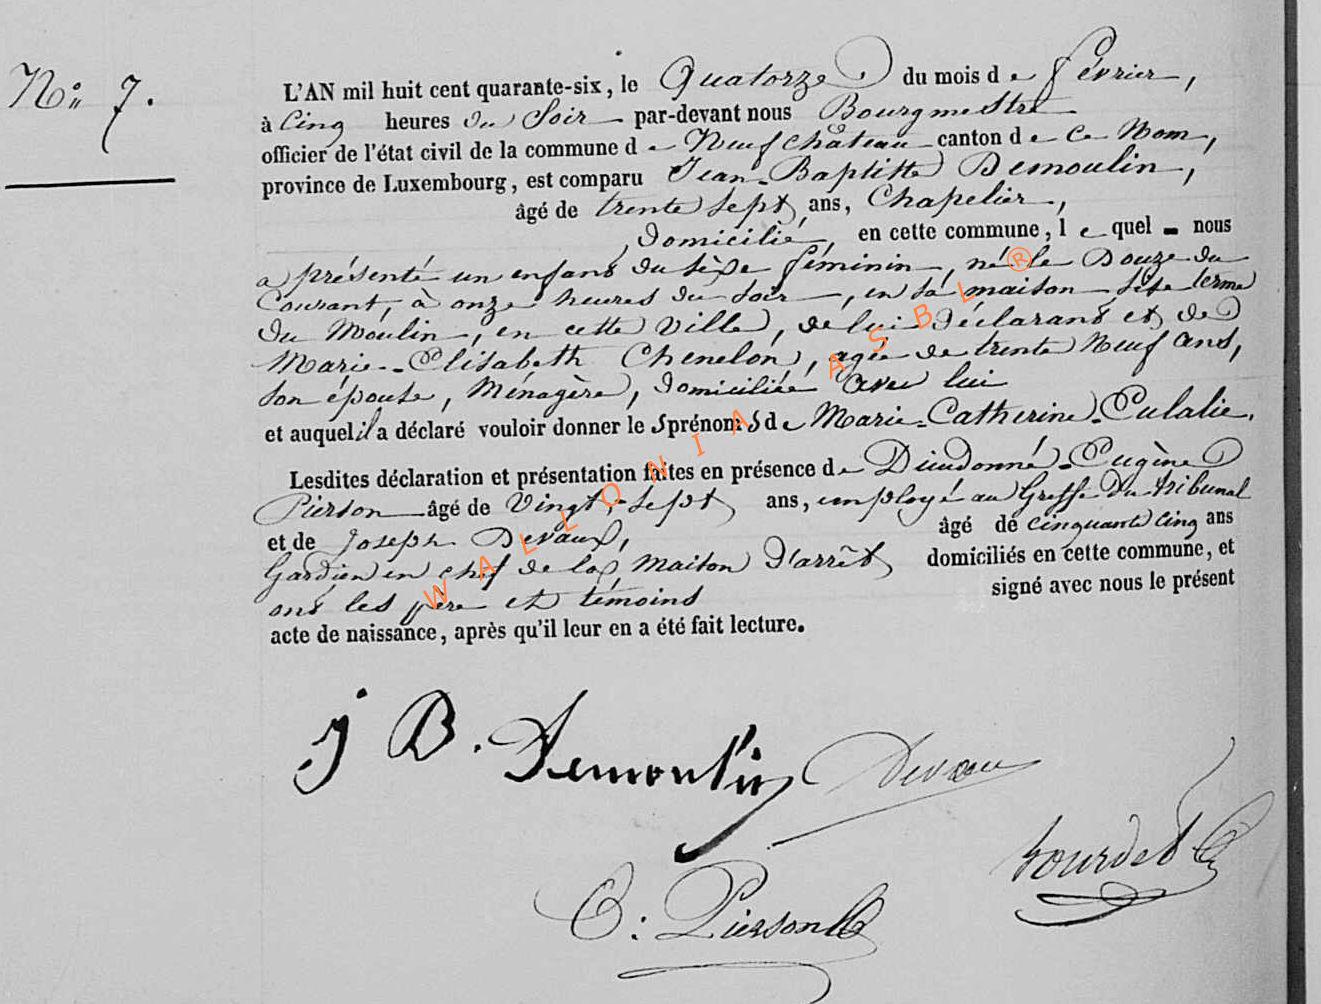 N° 7.
L'AN mil huit cent quarante-six, le Quatorze du mois de février,
à Cinq heures du Soir par-devant nous Bourgmestre
officier de l'état civil de la commune de Neufchâteau canton de Ce Nom,
province de Luxembourg, est comparu Jean-Baptiste Demoulin,
âgé de trente sept ans, Chapelier,
, Domicilié, en cette commune, lequel nous
a présenté un enfant du sèxe féminin, né le Douze du
Courant, à onze heures du Soir, en sa maison, sise
du Moulin, en cette Ville, de lui Déclarant et de
Marie-Elisabeth Chenelon, agée de trente Neuf ans,
son épouse, Ménagère, domiciliée avec lui
et auquel il a déclaré vouloir donner les prénoms de Marie-Catherine-Eulalie.
Lesdites déclaration et présentation faites en présence de Dieudonné-Eugène
Pierson âgé de Vingt-sept ans, employé au Greffe du tribunal
et de Joseph Devaux, âgé de cinquante cinq ans
Gardien en chef de la Maison d'arrêt domiciliés en cette commune, et
ont les père et témoins signé avec nous le présent
acte de naissance, après qu'il leur en a été fait lecture.
J B. Demoulin Devaux
Bourdet
E: Pierson
WALLONIA ASBL ®